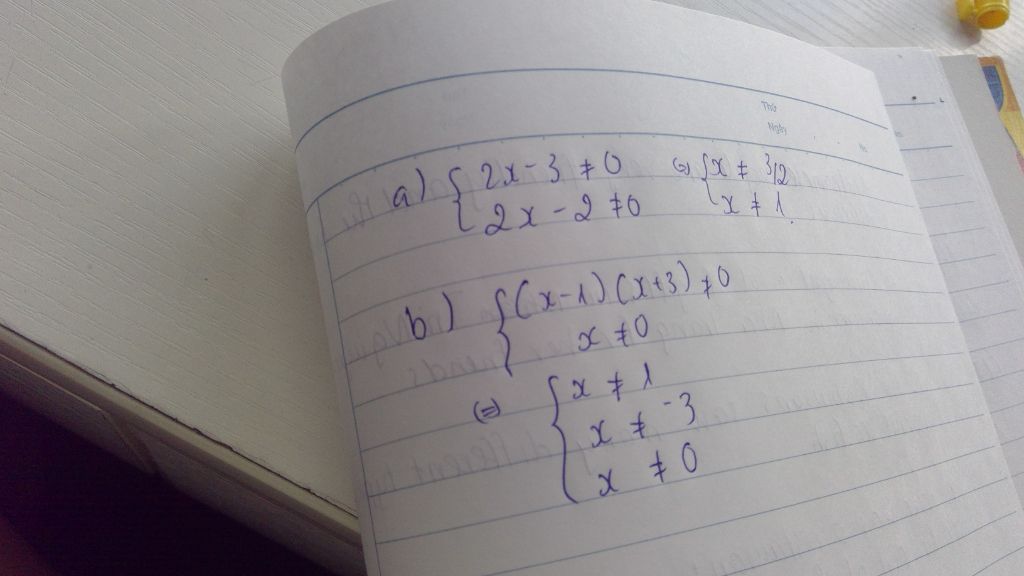 Thứ
Ngày
a) { 2x - 3 ≠ 0 (=) { x ≠ 3/2
2x - 2 ≠ 0 x ≠ 1.
b) { (x-1) (x+3) ≠ 0
x ≠ 0
(=) { x ≠ 1
x ≠ -3
x ≠ 0